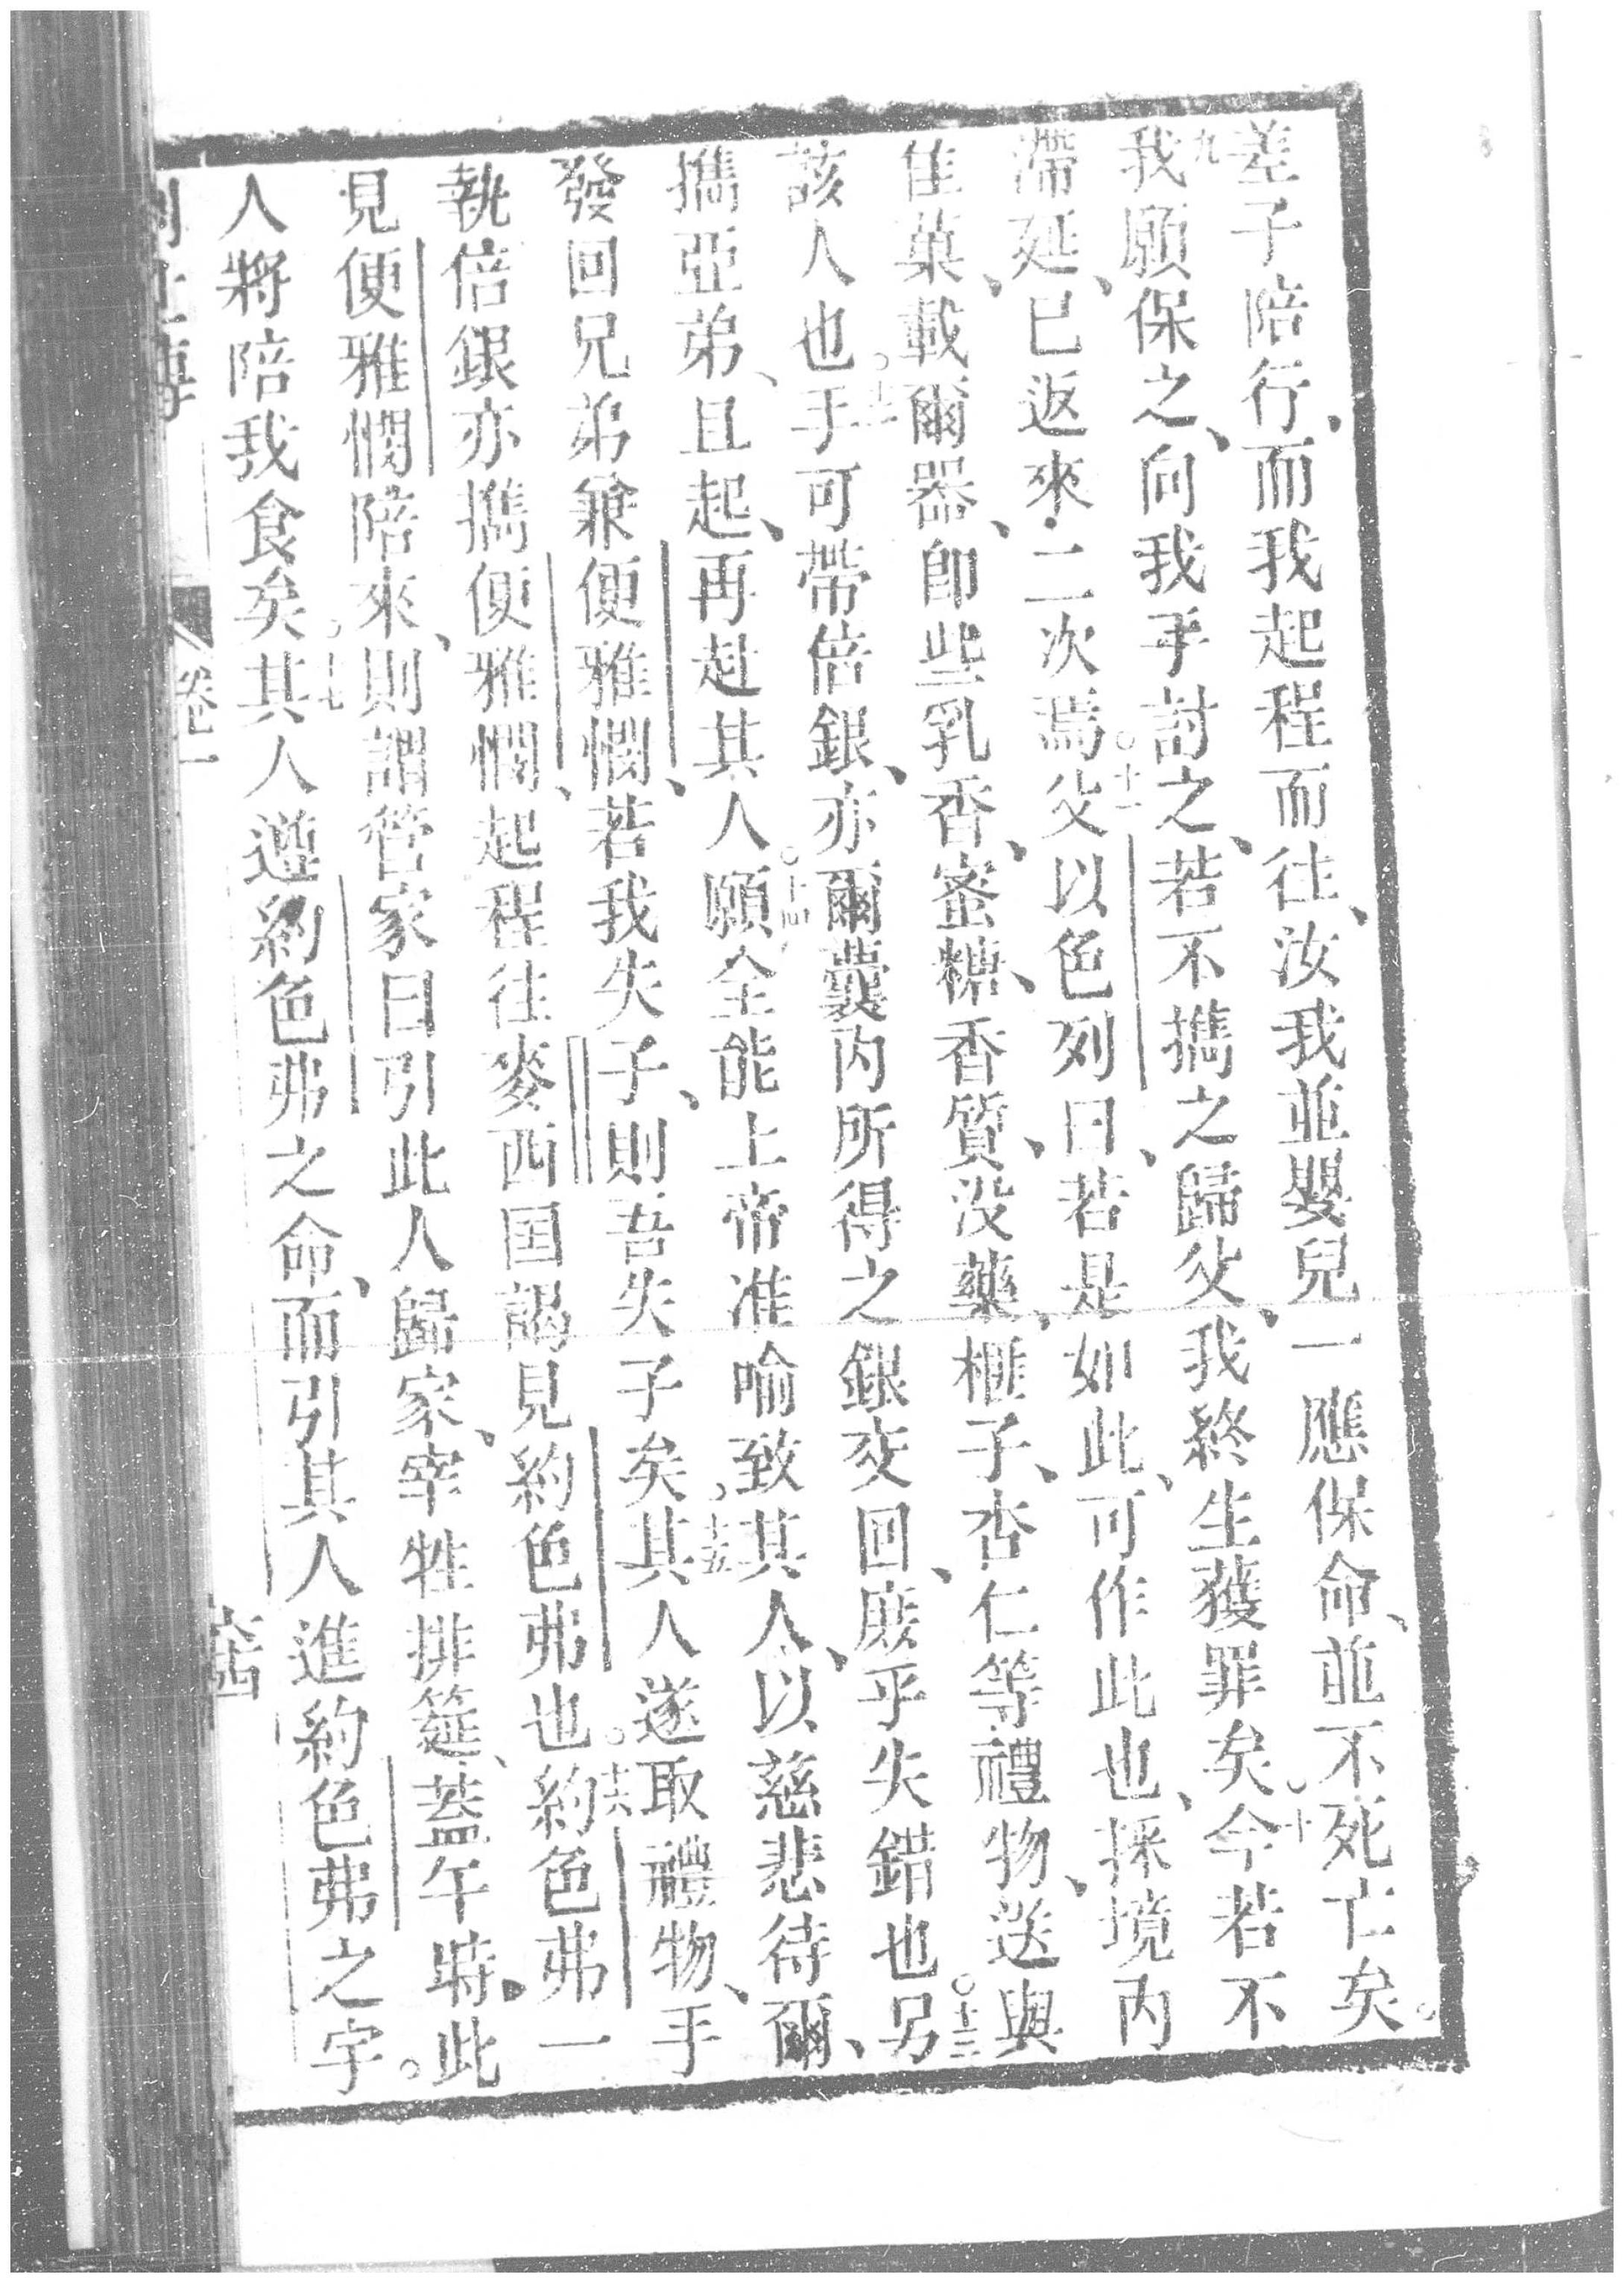 差子陪行、而我起程而往、汝我並嬰兒一應保命、並不死亡矣。
九我願保之、向我手討之、若不攜之歸父、我終生獲罪矣。十今若不
滯延、已返來二次焉。十一父以色列曰、若是如此、可作此也、採境內
佳菓、載爾器、即些乳香、蜜糖、香質、没藥、榧子、杏仁等禮物、送與
該人也。十二手可帶倍銀、亦爾囊內所得之銀交回、庶乎失錯也。十三另
攜亞弟、且起、再赴其人。十四願全能上帝准喻致其人、以慈悲待爾、
發回兄弟兼便雅憫、若我失子、則吾失子矣。十五其人遂取禮物、手
執倍銀亦攜便雅憫、起程往麥西国謁見約色弗也。十六約色弗一
見便雅憫陪來、則謂管家曰引此人歸家、宰牲排筵、蓋午時此
人將陪我食矣。十七其人遵約色弗之命、而引其人進約色弗之宇。
卷一